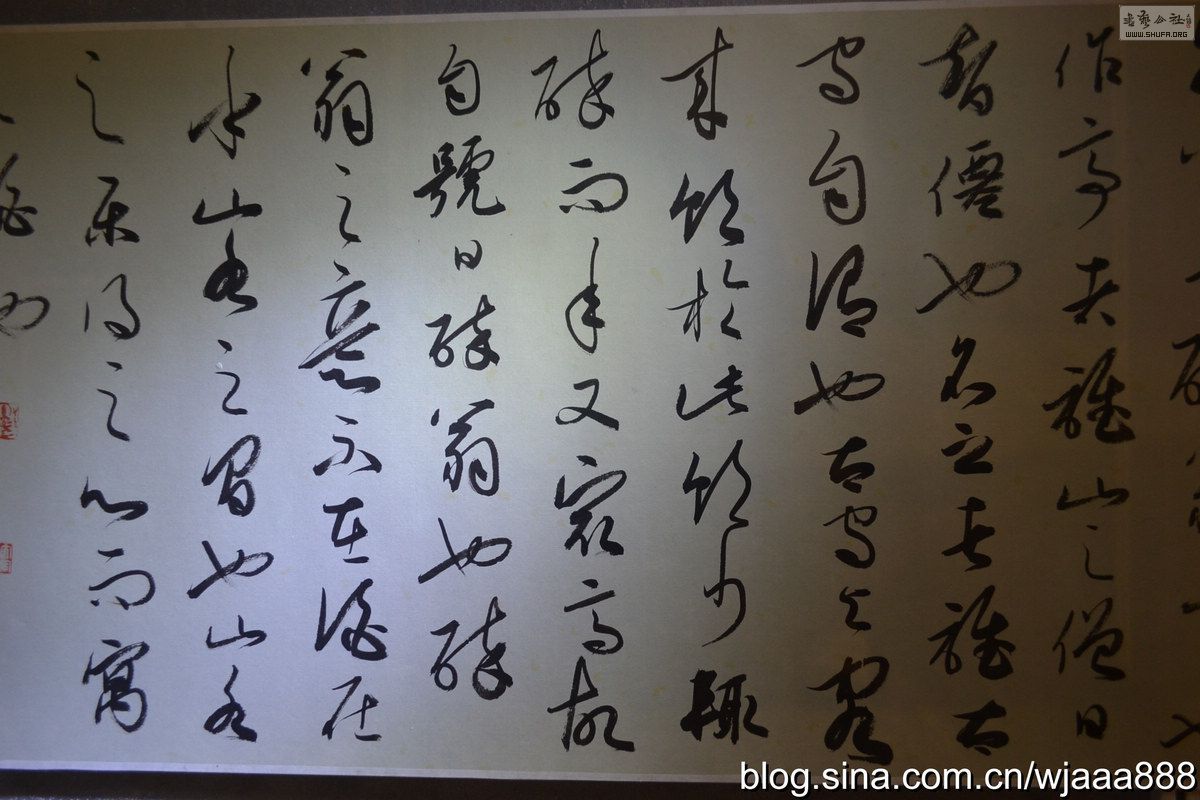 作亭者誰山之僧曰
智僊也名之者誰太
守自謂也太守與客
來飲於此飲少輒
醉而年又㝡高故
自號曰醉翁也醉
翁之意不在酒在
乎山水之間也山水
之樂得之心而寓
酒也
書藝公社
WWW.SHUFA.ORG
blog.sina.com.cn/wjaaa888